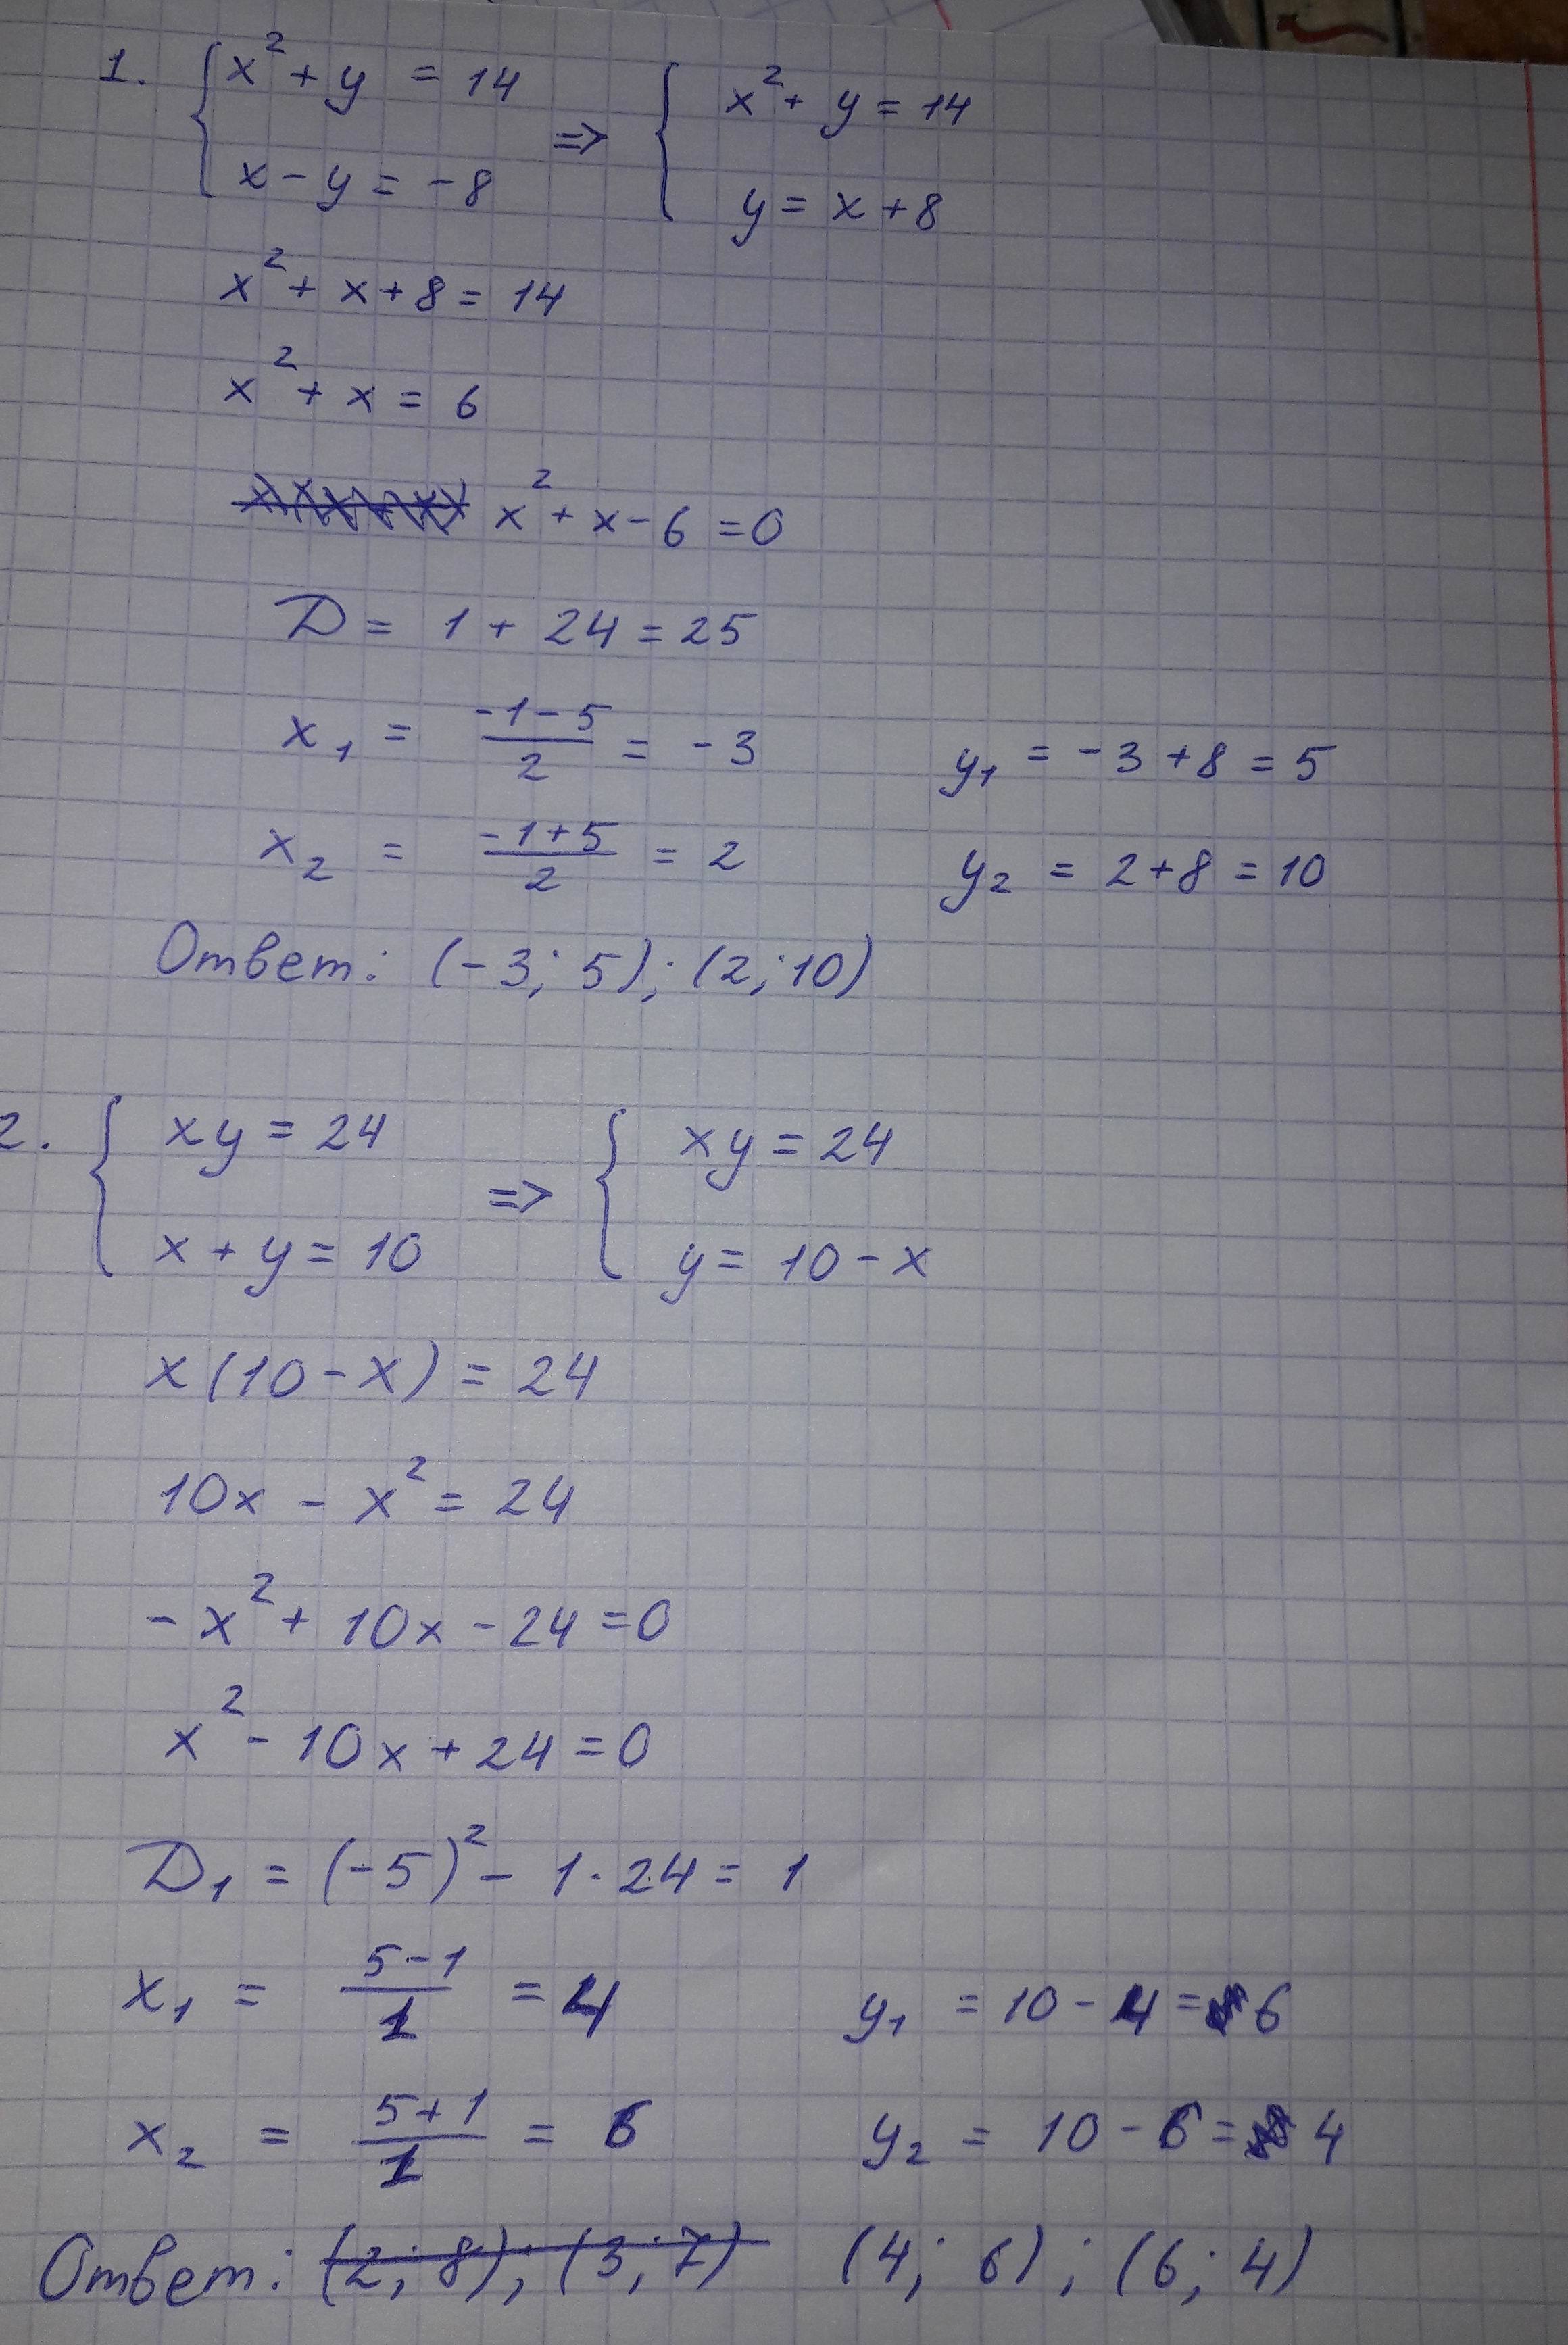 1. { x² + y = 14 => { x² + y = 14
x - y = -8 y = x + 8
x² + x + 8 = 14
x² + x = 6
x² + x - 6 = 0
D = 1 + 24 = 25
x₁ = (-1 - 5)/2 = -3 y₁ = -3 + 8 = 5
x₂ = (-1 + 5)/2 = 2 y₂ = 2 + 8 = 10
Ответ: (-3; 5); (2; 10)
2. { xy = 24 => { xy = 24
x + y = 10 y = 10 - x
x(10 - x) = 24
10x - x² = 24
-x² + 10x - 24 = 0
x² - 10x + 24 = 0
D₁ = (-5)² - 1·24 = 1
x₁ = (5 - 1)/1 = 4 y₁ = 10 - 4 = 6
x₂ = (5 + 1)/1 = 6 y₂ = 10 - 6 = 4
Ответ: (2; 8); (3; 7) (4; 6); (6; 4)